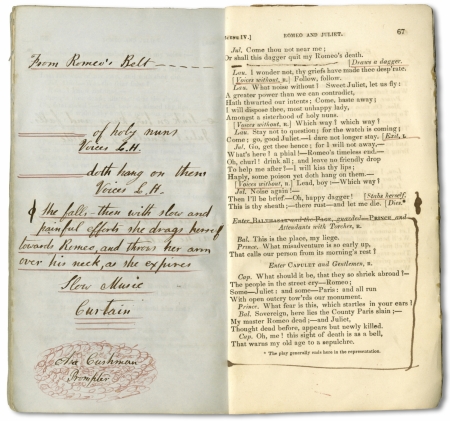 From Romeo's Belt
of holy nuns
Voices L.H.
doth hang on them
Voices L.H.
She falls — then with slow and
painful efforts she drags herself
towards Romeo, and throws her arm
over his neck, as she expires
Slow Music
Curtain
Cushman
Prompter
SCENE IV.] ROMEO AND JULIET. 67
Jul. Come thou not near me;
Or shall this dagger quit my Romeo's death.
[Draws a dagger.
Lau. I wonder not, thy griefs have made thee desp'rate.
[Voices without, R.] Follow, follow.
Lau. What noise without! Sweet Juliet, let us fly:
A greater power than we can contradict,
Hath thwarted our intents; Come, haste away;
I will dispose thee, most unhappy lady,
Amongst a sisterhood of holy nuns.
[Voices without, R.] Which way! which way!
Lau. Stay not to question; for the watch is coming;
Come; go, good Juliet.—I dare not longer stay. [Exit,
Jul. Go, get thee hence; for I will not away,—
What's here! a phial!—Romeo's timeless end.—
Oh, churl! drink all; and leave no friendly drop
To help me after!—I will kiss thy lips;
Haply, some poison yet doth hang on them.—
[Voices without, R.] Lead, boy:—Which way!
Jul. Noise again!—
Then I'll be brief—Oh, happy dagger! [Stabs herself.
This is thy sheath;—there rust—and let me die. [Dies.*
Enter BALTHASAR and the PAGE, guarded—PRINCE, and
Attendants with Torches, R.
Bal. This is the place, my liege.
Prince. What misadventure is so early up,
That calls our person from its morning's rest!
Enter CAPULET and Gentlemen, R.
Cap. What should it be, that they so shriek abroad!—
The people in the street cry—Romeo;
Some—Juliet: and some—Paris: and all run
With open outcry tow'rds our monument.
Prince. What fear is this, which startles in your ears!
Bal. Sovereign, here lies the County Paris slain;—
My master Romeo dead;—and Juliet,
Thought dead before, appears but newly killed.
Cap. Oh, me! this sight of death is as a bell,
That warns my old age to a sepulchre.
* The play generally ends here in the representation.